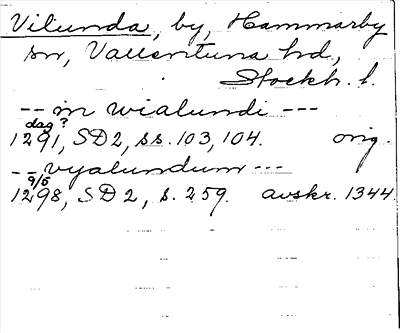 Vilunda, by, Hammarby
sn, Vallentuna hd,
Stockh. l.
-- in wialundi ---
dag?
1291, SD 2, ss. 103, 104. orig.
-- vyalundum ---
9/5
1298, SD 2, s. 259. avskr. 1344.